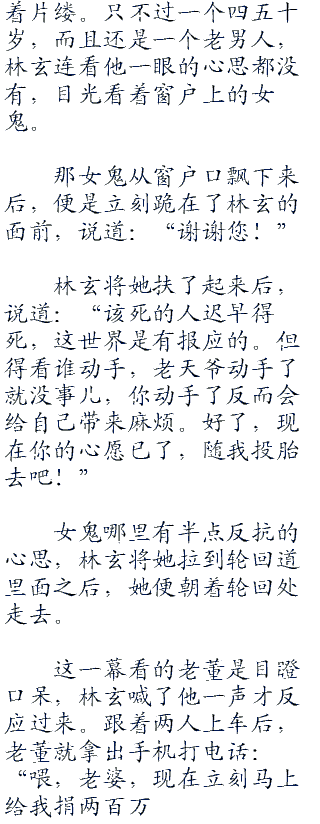 着片缕。只不过一个四五十
岁，而且还是一个老男人，
林玄连看他一眼的心思都没
有，目光看着窗户上的女
鬼。
那女鬼从窗户口飘下来
后，便是立刻跪在了林玄的
面前，说道：“谢谢您！”
林玄将她扶了起来后，
说道：“该死的人迟早得
死，这世界是有报应的。但
得看谁动手，老天爷动手了
就没事儿，你动手了反而会
给自己带来麻烦。好了，现
在你的心愿已了，随我投胎
去吧！”
女鬼哪里有半点反抗的
心思，林玄将她拉到轮回道
里面之后，她便朝着轮回处
走去。
这一幕看的老董是目瞪
口呆，林玄喊了他一声才反
应过来。跟着两人上车后，
老董就拿出手机打电话：
“喂，老婆，现在立刻马上
给我捐两百万